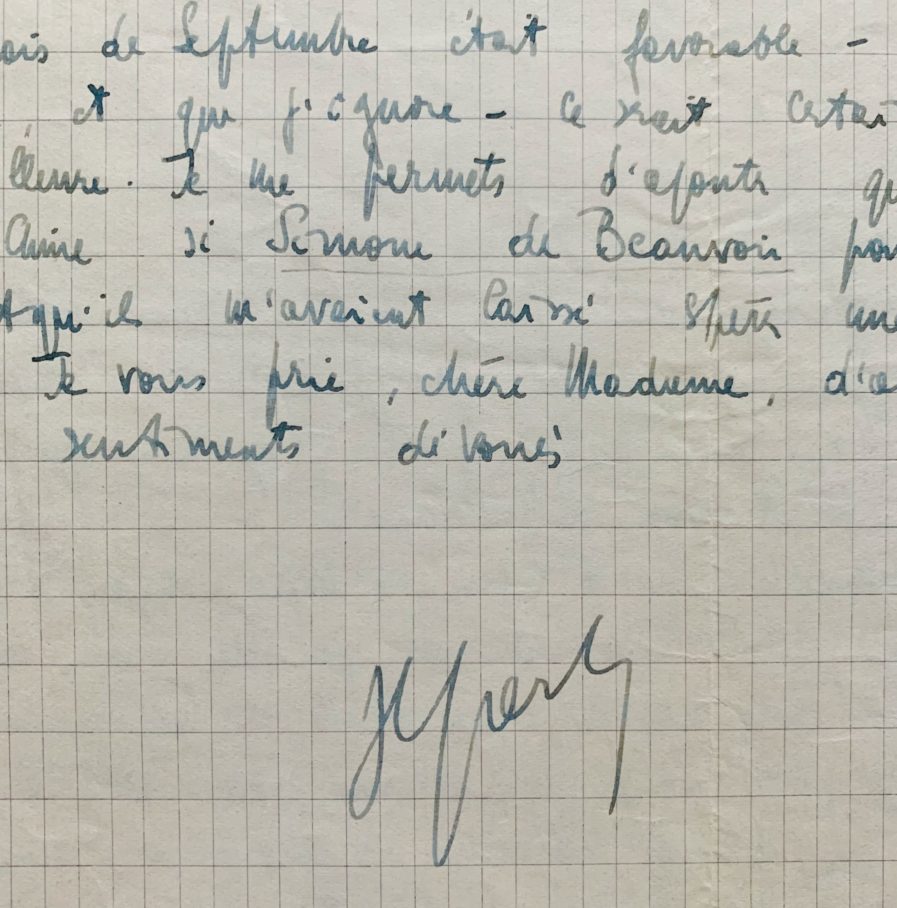 ois de Septembre était favorable -
et que j'ignore - ce serait certai
lleure. Je me permets d'ajouter qu
Chine si Simone de Beauvoir pou
qu'ils m'avaient laissé espérer une
Je vous prie, chère Madame, d'a
sentiments dévoués